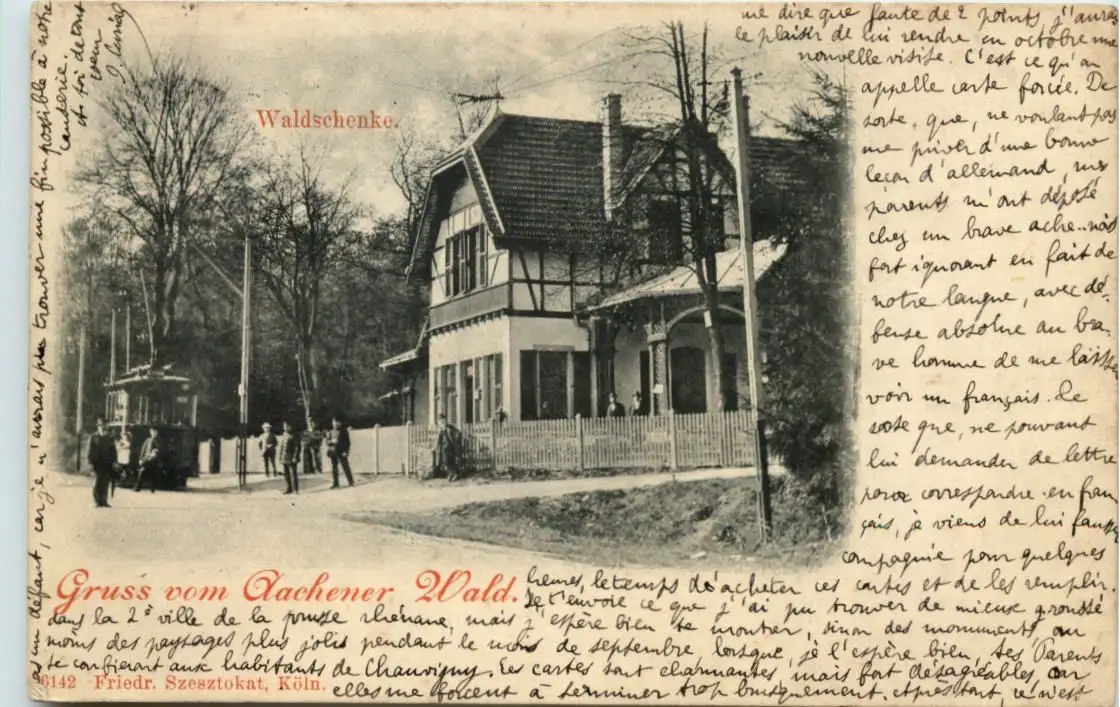 me dire que faute de 2 points, j'aurai
le plaisir de lui rendre en octobre une
nouvelle visite. C'est ce qu'on
appelle carte forcée. De
sorte, que, ne voulant pas
me priver d'une bonne
leçon d'allemand, mes
parents m'ont déposé
chez un brave
fort ignorant en fait de
notre langue, avec dé-
fense absolue au bra-
ve homme de me laisser
voir un français. De
sorte que, ne pouvant
lui demander de lettre
pour correspondre en fran-
çais, je viens de lui fausser
compagnie pour quelques
heures, le temps d'acheter ces cartes et de les remplir.
Je t'envoie ce que j'ai pu trouver de mieux
dans la 2e ville de la rhénane, mais j'espère bien te montrer, sinon des monuments au
moins des paysages plus jolis pendant le mois de septembre lorsque, je l'espère bien, tes Parents
te confieront aux habitants de Chauvigny. Ces cartes sont charmantes, mais fort désagréables, car
elles me forcent à terminer trop brusquement. Après tout, ce n'est
as un défaut, car je n'aurais pu trouver une fin possible à notre
causerie.
et toi de tout
coeur
Waldschenke.
Gruss vom Aachener Wald.
6142 Friedr. Szesztokat, Köln.